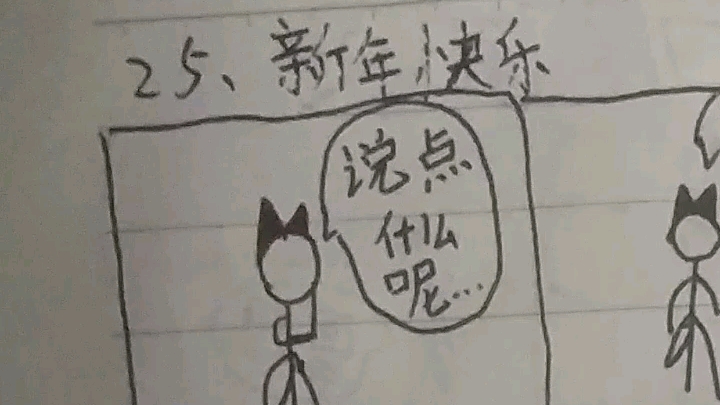 25、新年快乐
说点
什么
呢...